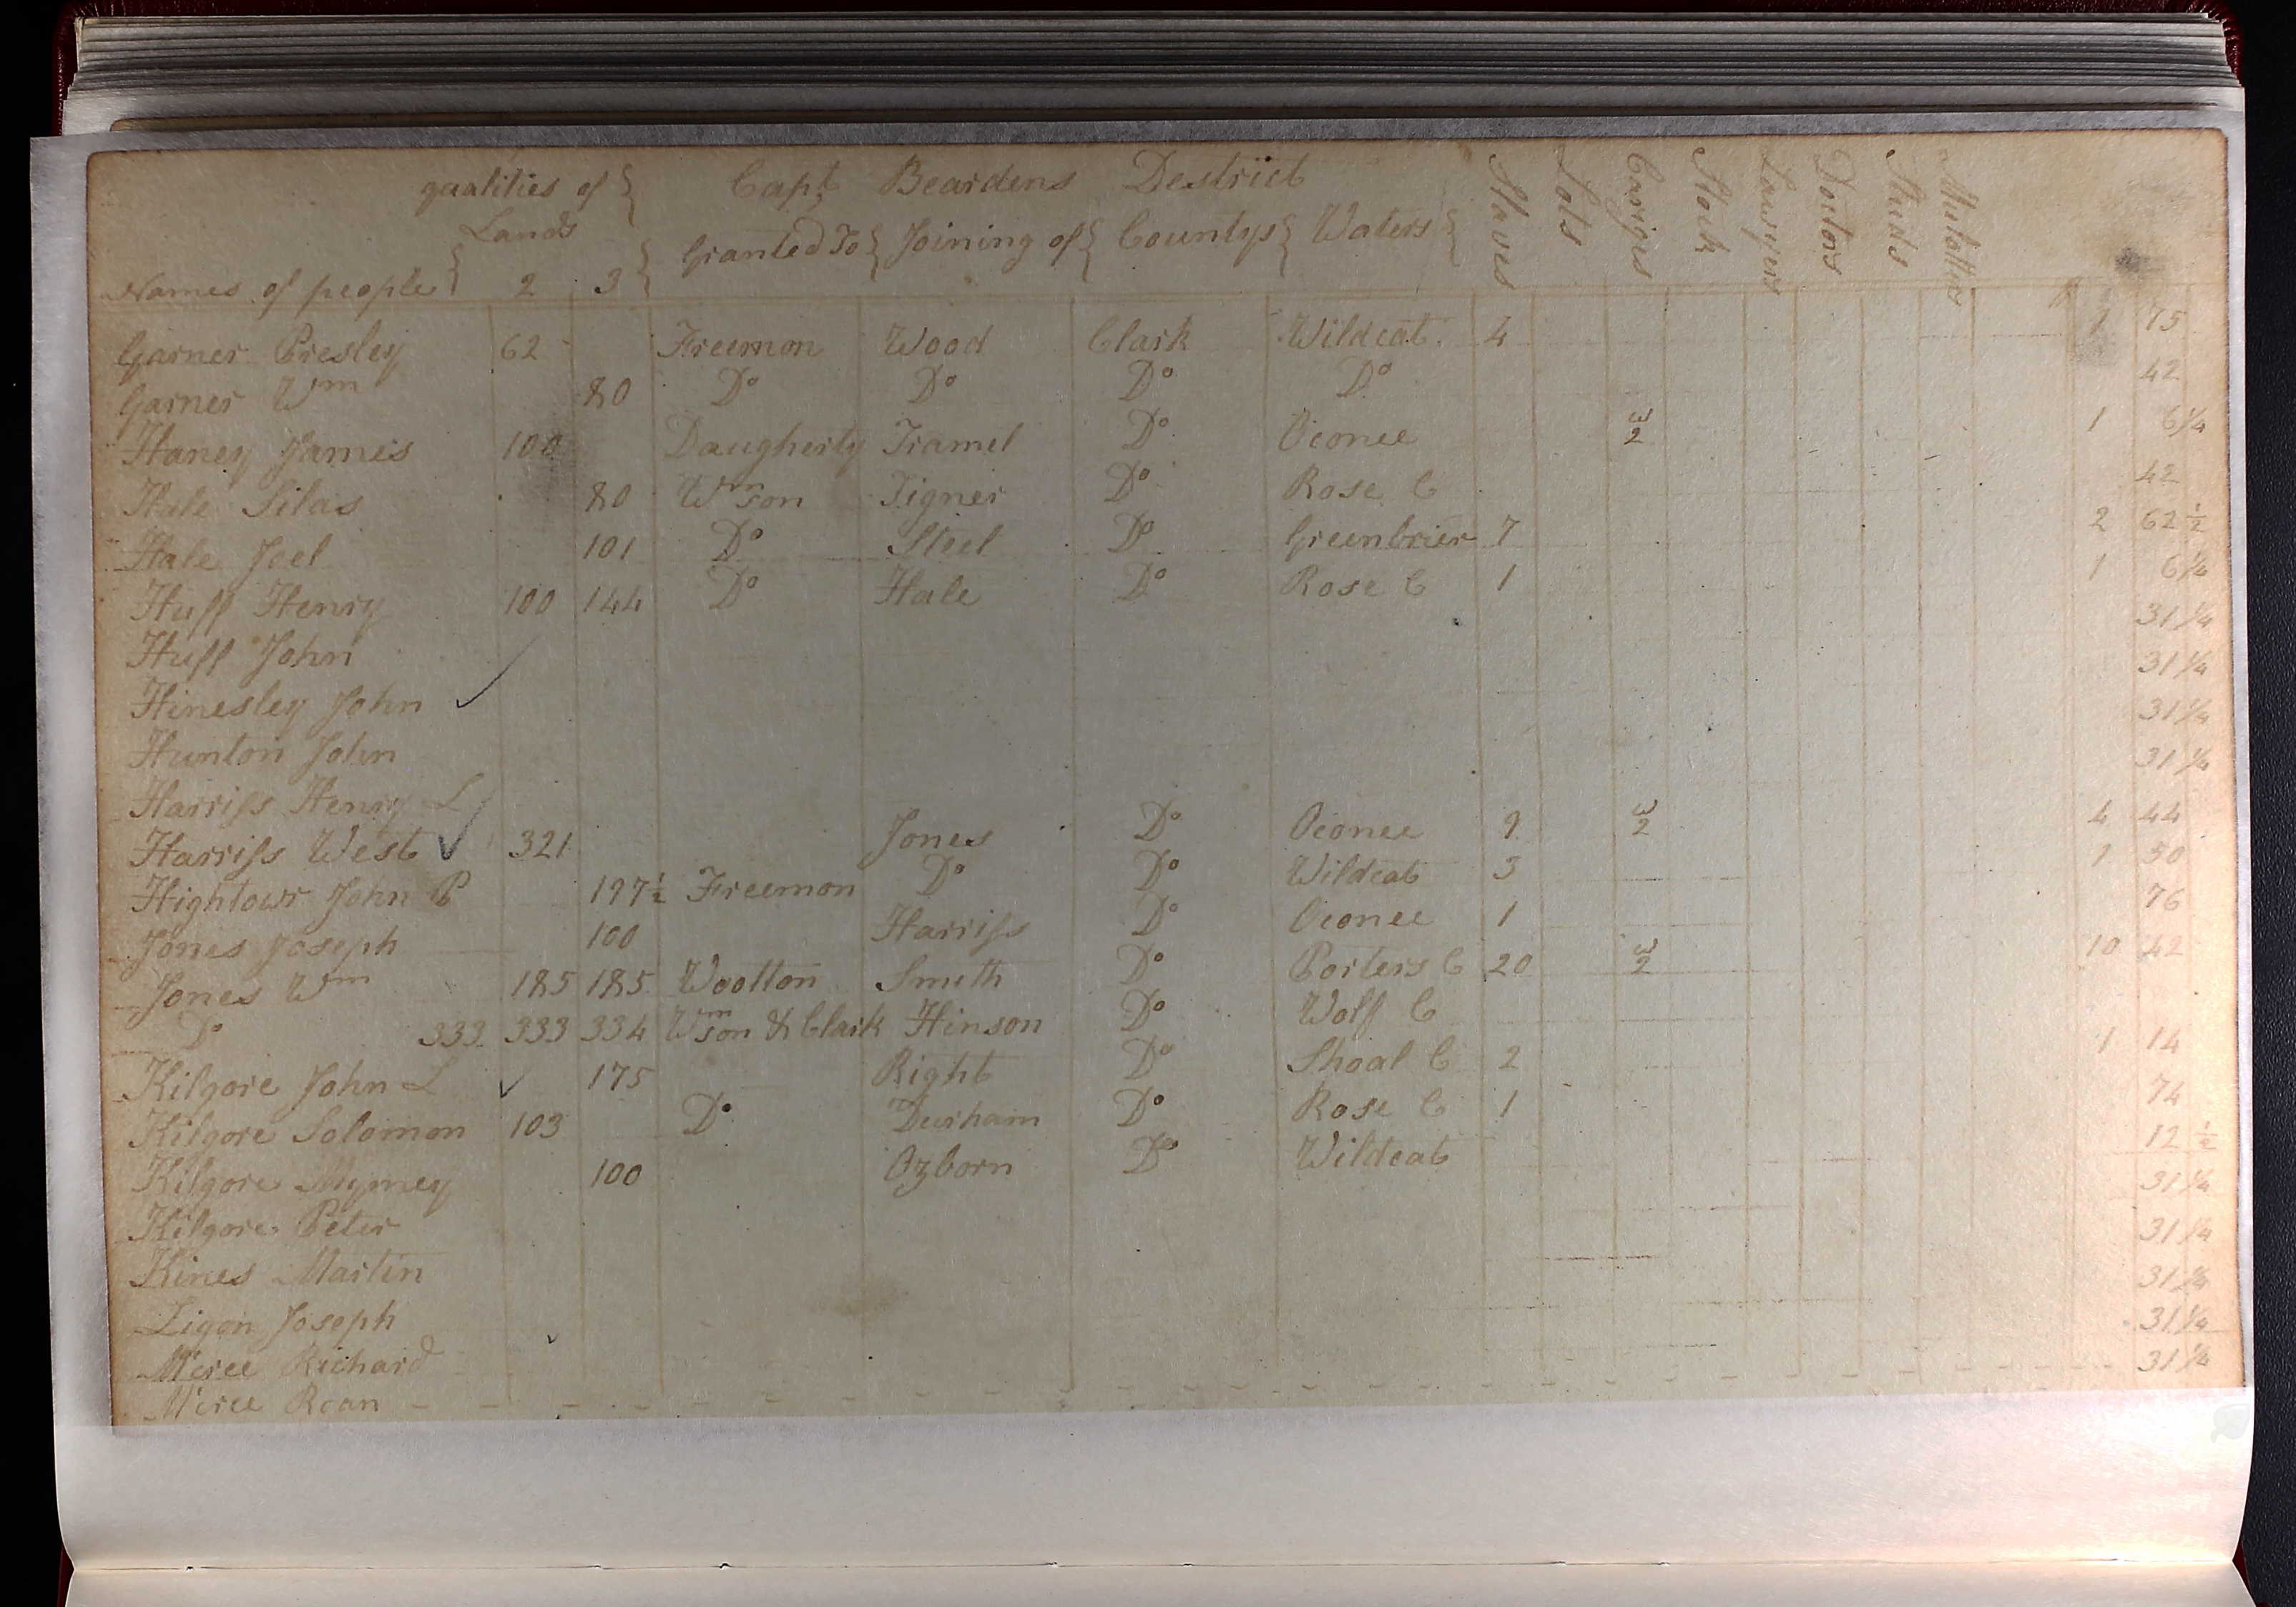 quatities of } Capt Beardens Destrict
Lands
Names of people } 2 3 } Granted To } Joining of } Countys } Waters } Slaves Lots Cariges Stock Lawyers Doctors Studs Mulattoes
Garner Presley 62 Freemon Wood Clark Wildcat 4 1 75
Garner Wm 80 Do Do Do Do 42
Haney James 100 Daugherty Tramel Do Oconee 3 2 1 6 1/4
Hale Silas 80 Wmson Tigner Do Rose C 42
Hale Joel 101 Do Steel Do Greenbrier 7 2 62 1/2
Huff Henry 100 144 Do Hale Do Rose C 1 1 6 1/4
Huff John 31 1/4
Hinesley John ✓ 31 1/4
Hunton John 31 1/4
Harriss Henry L 31 1/4
Harriss West ✓ 321 Jones Do Oconee 9 3 2 4 44
Hightowr John P 197 1/2 Freemon Do Do Wildcat 3 1 50
Jones Joseph 100 Harriss Do Oconee 1 76
Jones Wm 185 185 Wootton Smith Do Porters C 20 3 2 10 42
Do 333 333 334 Wmson & Clark Hinson Do Wolf C
Kilgore John L ✓ 175 Right Do Shoal C 2 1 14
Kilgore Solomon 103 Do Durham Do Rose C 1 74
Kilgore Mymey 100 Ozborn Do Wildcat 12 1/2
Kilgore Peter 31 1/4
Kines Martin 31 1/4
Ligon Joseph 31 1/4
Mcree Richard 31 1/4
Mcree Roan 31 1/4